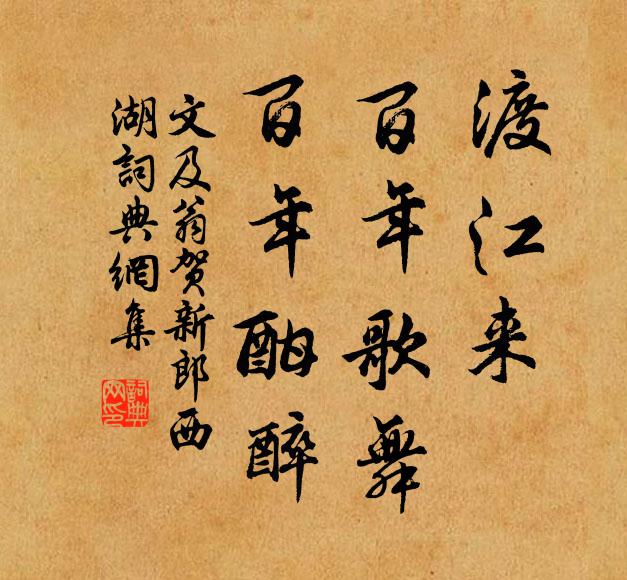 渡江来
百年歌舞
百年酣醉
文及翁贺新郎西
湖詞典網集
詞典网印